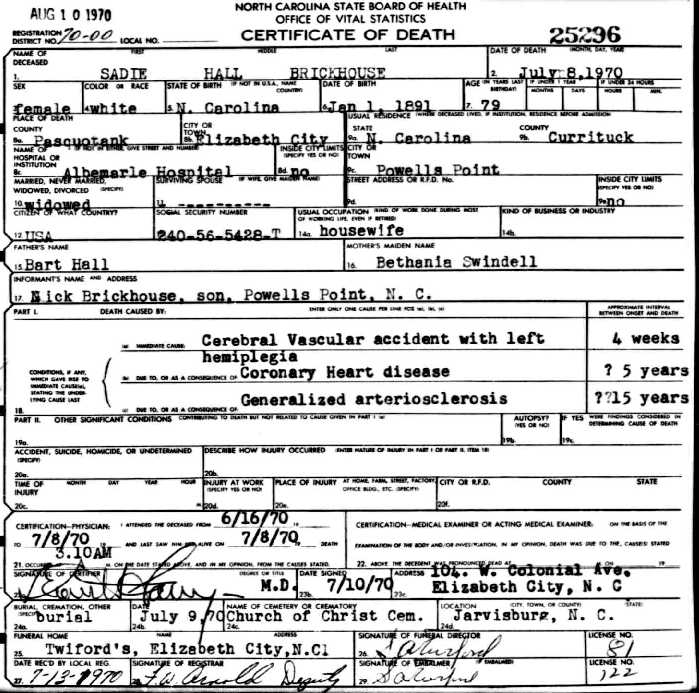 AUG 10 1970
NORTH CAROLINA STATE BOARD OF HEALTH
OFFICE OF VITAL STATISTICS
REGISTRATION DISTRICT NO. 70-00 LOCAL NO.
CERTIFICATE OF DEATH 25296
NAME OF DECEASED FIRST MIDDLE LAST DATE OF DEATH (MONTH, DAY, YEAR)
1. SADIE HALL BRICKHOUSE 2. July 8, 1970
SEX COLOR OR RACE STATE OF BIRTH (IF NOT IN U.S.A., NAME COUNTRY) DATE OF BIRTH AGE (IN YEARS LAST BIRTHDAY) IF UNDER 1 YEAR IF UNDER 24 HOURS
MONTHS DAYS HOURS MIN.
female 4. white 5. N. Carolina 6. Jan 1, 1891 7. 79
PLACE OF DEATH USUAL RESIDENCE (WHERE DECEASED LIVED, IF INSTITUTION, RESIDENCE BEFORE ADMISSION)
COUNTY CITY OR TOWN STATE COUNTY
8a. Pasquotank 8b. Elizabeth City 9a. N. Carolina 9b. Currituck
NAME OF HOSPITAL OR INSTITUTION (IF NOT IN EITHER, GIVE STREET AND NUMBER) INSIDE CITY LIMITS (SPECIFY YES OR NO) CITY OR TOWN
8c. Albemarle Hospital 8d. no 9c. Powells Point
MARRIED, NEVER MARRIED, WIDOWED, DIVORCED (SPECIFY) SURVIVING SPOUSE (IF WIFE, GIVE MAIDEN NAME) STREET ADDRESS OR R.F.D. No. INSIDE CITY LIMITS (SPECIFY YES OR NO)
10. widowed 9d. 9e. no
CITIZEN OF WHAT COUNTRY? SOCIAL SECURITY NUMBER USUAL OCCUPATION (KIND OF WORK DONE DURING MOST OF WORKING LIFE, EVEN IF RETIRED) KIND OF BUSINESS OR INDUSTRY
12. USA 240-56-5428-T 14a. housewife 14b.
FATHER'S NAME MOTHER'S MAIDEN NAME
15. Bart Hall 16. Bethania Swindell
INFORMANT'S NAME AND ADDRESS
17. Nick Brickhouse, son, Powells Point, N. C.
PART I. DEATH CAUSED BY: ENTER ONLY ONE CAUSE PER LINE FOR (a), (b), (c) APPROXIMATE INTERVAL BETWEEN ONSET AND DEATH
(a) IMMEDIATE CAUSE: Cerebral Vascular accident with left hemiplegia 4 weeks
CONDITIONS, IF ANY, WHICH GAVE RISE TO IMMEDIATE CAUSE(a), STATING THE UNDERLYING CAUSE LAST
(b) DUE TO, OR AS A CONSEQUENCE OF Coronary Heart disease ? 5 years
Generalized arteriosclerosis ??15 years
18. (c) DUE TO, OR AS A CONSEQUENCE OF.
PART II. OTHER SIGNIFICANT CONDITIONS CONTRIBUTING TO DEATH BUT NOT RELATED TO CAUSE GIVEN IN PART I (a) AUTOPSY? (YES OR NO) IF YES WERE FINDINGS CONSIDERED IN DETERMINING CAUSE OF DEATH
19a. 19b. 19c.
ACCIDENT, SUICIDE, HOMICIDE, OR UNDETERMINED (SPECIFY) DESCRIBE HOW INJURY OCCURRED (ENTER NATURE OF INJURY IN PART I OR PART II, ITEM 18)
20a. 20b.
TIME OF INJURY MONTH DAY YEAR HOUR INJURY AT WORK (SPECIFY YES OR NO) PLACE OF INJURY AT HOME, FARM, STREET, FACTORY, OFFICE BLDG., ETC. (SPECIFY) CITY OR R.F.D. COUNTY STATE
20c. 20d. 20e. 20f.
CERTIFICATION-PHYSICIAN: I ATTENDED THE DECEASED FROM 6/16/70
TO 7/8/70 AND LAST SAW HIM ALIVE ON 7/8/70 DEATH
3.10AM
21. OCCURRED M. ON THE DATE STATED ABOVE, AND IN MY OPINION, FROM THE CAUSES STATED.
CERTIFICATION-MEDICAL EXAMINER OR ACTING MEDICAL EXAMINER: ON THE BASIS OF THE
EXAMINATION OF THE BODY AND/OR INVESTIGATION, IN MY OPINION, DEATH WAS DUE TO THE, CAUSE(S) STATED
22. ABOVE. THE DECEDENT WAS PRONOUNCED DEAD AT ON 19
SIGNATURE OF CERTIFIER DEGREE OR TITLE DATE SIGNED ADDRESS
M.D. 23b. 7/10/70 23c. 104. W. Colonial Ave, Elizabeth City, N. C
BURIAL, CREMATION, OTHER (SPECIFY) DATE NAME OF CEMETERY OR CREMATORY LOCATION (CITY, TOWN, OR COUNTY) (STATE)
24a. burial 24b. July 9, 70 24c. Church of Christ Cem. 24d. Jarvisburg, N. C.
FUNERAL HOME NAME ADDRESS SIGNATURE OF FUNERAL DIRECTOR LICENSE NO.
25. Twiford's, Elizabeth City,N.Cl 26. 81
DATE REC'D BY LOCAL REG. SIGNATURE OF REGISTRAR SIGNATURE OF EMBALMER (IF EMBALMED) LICENSE NO.
27. 7-13-1970 28. F.W. Arnold Deputy 29. 122